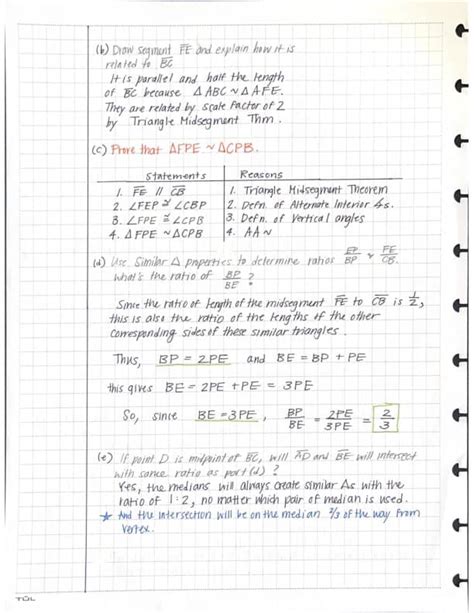 (b) Draw segment FE and explain how it is
related to BC
It is parallel and half the length
of BC because △ABC ~ △AFE.
They are related by scale factor of 2
by Triangle Midsegment Thm.
(c) Prove that △FPE ~ △CPB.
Statements | Reasons
1. FE // CB | 1. Triangle Midsegment Theorem
2. ∠FEP ≅ ∠CBP | 2. Defn. of Alternate Interior ∠s.
3. ∠FPE ≅ ∠CPB | 3. Defn. of Vertical angles
4. △FPE ~ △CPB | 4. AA ~
(d) Use similar △ properties to determine ratios EP/BP & FE/CB.
what's the ratio of BP/BE?
Since the ratio of length of the midsegment FE to CB is 1/2,
this is also the ratio of the lengths of the other
corresponding sides of these similar triangles.
Thus, BP = 2PE and BE = BP + PE
this gives BE = 2PE + PE = 3PE
So, since BE = 3PE, BP/BE = 2PE/3PE = 2/3
(e) If point D is midpoint of BC, will AD and BE will intersect
with same ratio as part (d)?
Yes, the medians will always create similar △s with the
ratio of 1:2, no matter which pair of median is used.
★ And the intersection will be on the median 2/3 of the way from
vertex.
TUL